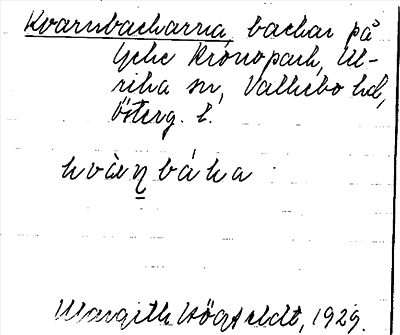 Kvarnbackarna, backar på
Yche Kronopark, Ul-
rika sn, Vallebo hd,
Österg. l.
kvàrn̲ báka
Margith Högfeldt, 1929.